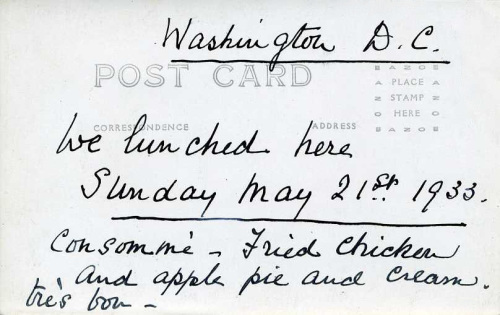 Washington D.C.
POST CARD
AZO
PLACE
STAMP
HERE
AZO
CORRESPONDENCE
ADDRESS
We lunched here
Sunday May 21st. 1933.
Consommé - Fried chicken
and apple pie and cream.
très bon -